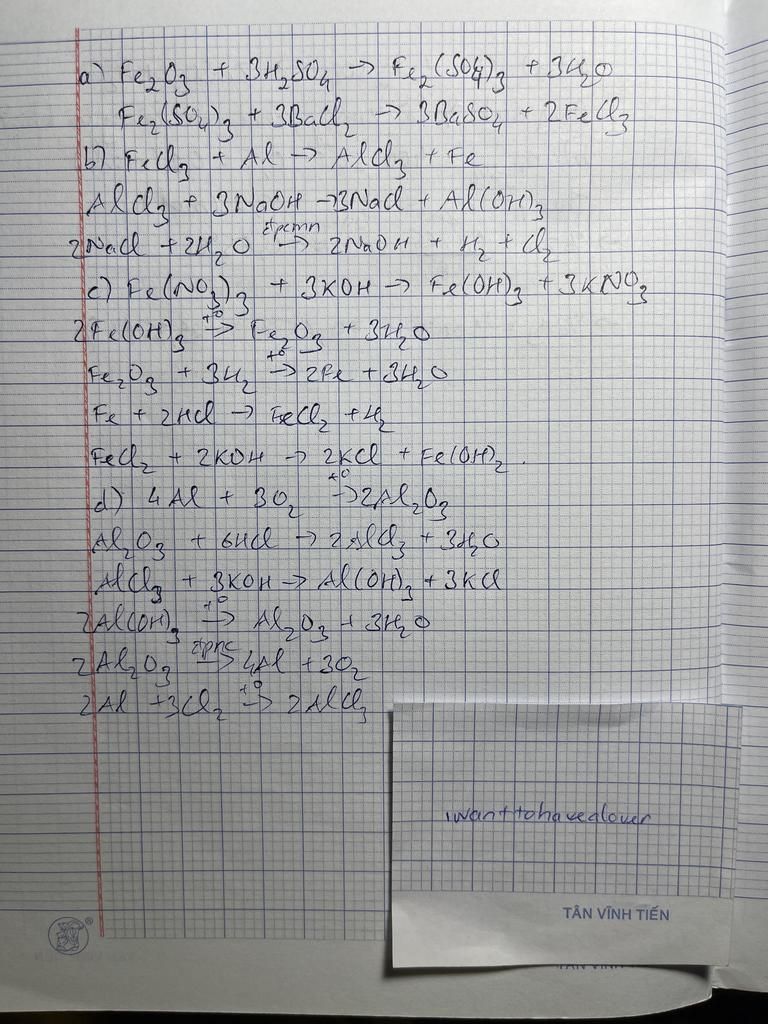 a) Fe2O3 + 3H2SO4 → Fe2(SO4)3 + 3H2O
Fe2(SO4)3 + 3BaCl2 → 3BaSO4 + 2FeCl3
b) FeCl3 + Al → AlCl3 + Fe
AlCl3 + 3NaOH → 3NaCl + Al(OH)3
2NaCl + 2H2O đpcmn → 2NaOH + H2 + Cl2
c) Fe(NO3)3 + 3KOH → Fe(OH)3 + 3KNO3
2Fe(OH)3 to → Fe2O3 + 3H2O
Fe2O3 + 3H2 to → 2Fe + 3H2O
Fe + 2HCl → FeCl2 + H2
FeCl2 + 2KOH → 2KCl + Fe(OH)2.
d) 4Al + 3O2 to → 2Al2O3
Al2O3 + 6HCl → 2AlCl3 + 3H2O
AlCl3 + 3KOH → Al(OH)3 + 3KCl
2Al(OH)3 to → Al2O3 + 3H2O
2Al2O3 đpnc → 4Al + 3O2
2Al + 3Cl2 to → 2AlCl3
iwanttohavealover
TÂN VĨNH TIẾN